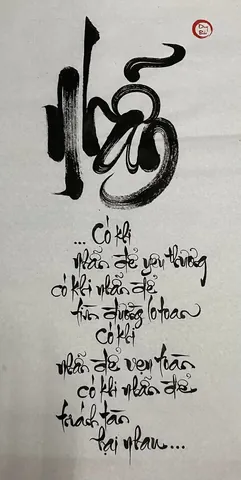 Nhẫn
... Có khi
nhẫn để yêu thương
có khi nhẫn để
tìm đường lo toan
Có khi
nhẫn để vẹn toàn
có khi nhẫn để
tránh tàn
hại nhau...